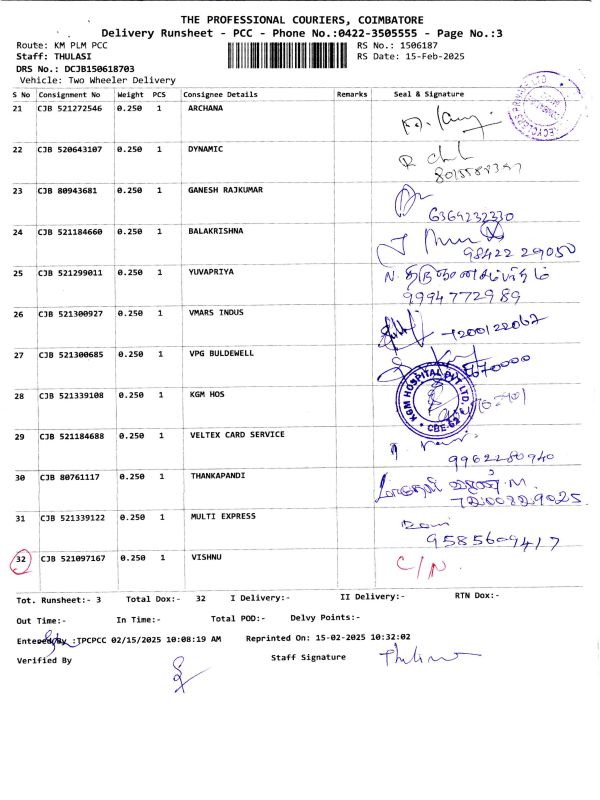 THE PROFESSIONAL COURIERS, COIMBATORE
Delivery Runsheet - PCC - Phone No.:0422-3505555 - Page No.:3
Route: KM PLM PCC
RS No.: 1506187
Staff: THULASI
RS Date: 15-Feb-2025
DRS No.: DCJB150618703
Vehicle: Two Wheeler Delivery
S No Consignment No Weight PCS Consignee Details Remarks Seal & Signature
21 CJB 521272546 0.250 1 ARCHANA
22 CJB 520643107 0.250 1 DYNAMIC
23 CJB 80943681 0.250 1 GANESH RAJKUMAR
6369232330
24 CJB 521184660 0.250 1 BALAKRISHNA
98422 29050
25 CJB 521299011 0.250 1 YUVAPRIYA
9994772989
26 CJB 521300927 0.250 1 VMARS INDUS
7200122067
27 CJB 521300685 0.250 1 VPG BULDEWELL
670000
28 CJB 521339108 0.250 1 KGM HOS
KGM HOSPITAL PVT LTD. CBE-62
29 CJB 521184688 0.250 1 VELTEX CARD SERVICE
9962280940
30 CJB 80761117 0.250 1 THANKAPANDI
7200829025
31 CJB 521339122 0.250 1 MULTI EXPRESS
9585609417
32 CJB 521097167 0.250 1 VISHNU
C/N.
Tot. Runsheet:- 3 Total Dox:- 32 I Delivery:- II Delivery:- RTN Dox:-
Out Time:- In Time:- Total POD:- Delvy Points:-
Entered By :TPCPCC 02/15/2025 10:08:19 AM Reprinted On: 15-02-2025 10:32:02
Verified By Staff Signature